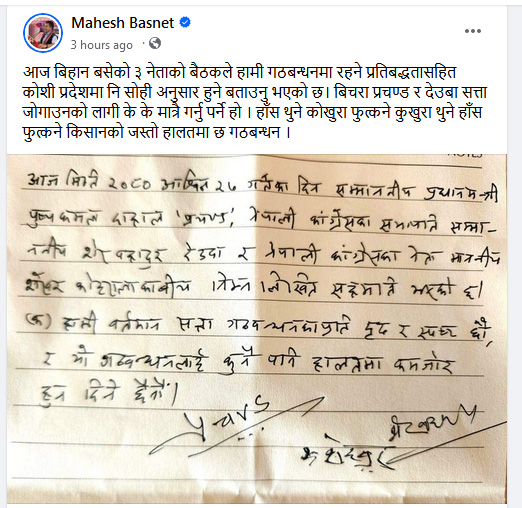 Mahesh Basnet
3 hours ago ·
आज बिहान बसेको ३ नेताको बैठकले हामी गठबन्धनमा रहने प्रतिबद्धतासहित
कोशी प्रदेशमा नि सोही अनुसार हुने बताउनु भएको छ। बिचरा प्रचण्ड र देउबा सत्ता
जोगाउनको लागी के के मात्रै गर्नु पर्ने हो । हाँस थुने कोखुरा फुत्कने कुखुरा थुने हाँस
फुत्कने किसानको जस्तो हालतमा छ गठबन्धन ।
आज मिति २०८० आश्विन २७ गतेका दिन सम्माननीय प्रधानमन्त्री
पुष्पकमल दाहाल 'प्रचण्ड', नेपाली कांग्रेसका सभापति सम्मा-
ननीय शेर बहादुर देउवा र नेपाली कांग्रेसका नेता माननीय
शेखर कोइरालाका बीच निम्न लिखित सहमति भएको छ।
(क) हामी वर्तमान सत्ता गठबन्धनका प्रति दृढ र स्पष्ट छौं,
र यो गठबन्धनलाई कुनै पनि हालतमा कमजोर
हुन दिने छैनौं।